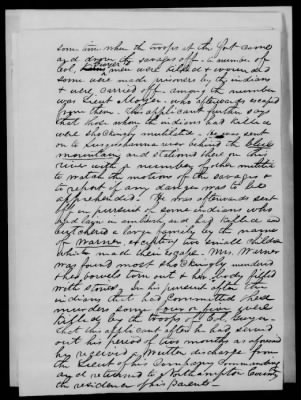 some time when the troops at the fort came
and drove the savages off - a number of
Col. men were killed & women and
some were made prisoners by the indians
& were carried off - among the number
was Lieut Moyer - who afterwards escaped
from them. This applicant further says
that those whom the indians had killed
were shockingly mutilated. - he was sent
on to Susquehanna river behind the blue
mountains and stationed there on the
river with a number of other militia
to watch the motions of the savages &
to report if any danger was to be
apprehended. He was afterwards sent
off in pursuit of some indians who
and had killed and
butchered a large family by the name
of Warner, excepting two small children
which made their escape - Mrs. Warner
was found most shockingly murdered
& her bowels torn out & her body filled
with stones. In his pursuit after the
indians that had committed these
murders some four or five were
killed by the troops of
that this applicant after he had served
out his period of two months as aforesaid
he received a written discharge from
the Lieut of his Company Commanding
and returned to Northampton County
the residence of his parents -